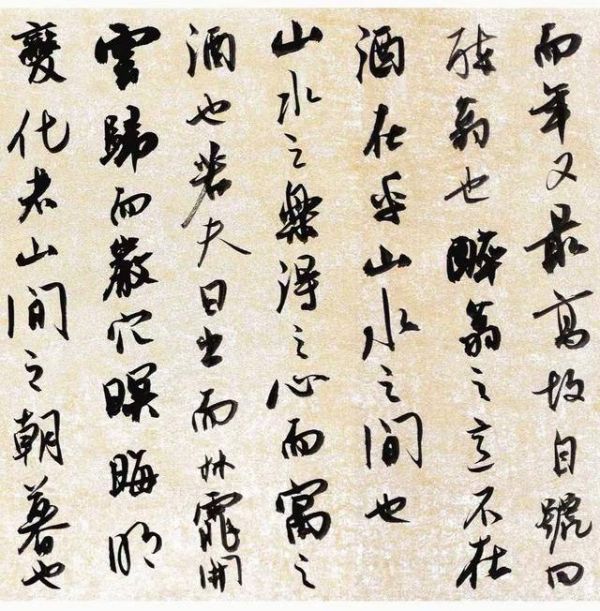 而年又最高故自號曰
醉翁也醉翁之意不在
酒在乎山水之間也
山水之樂得之心而寓之
酒也若夫日出而林霏開
雲歸而巖穴暝晦明
變化者山間之朝暮也